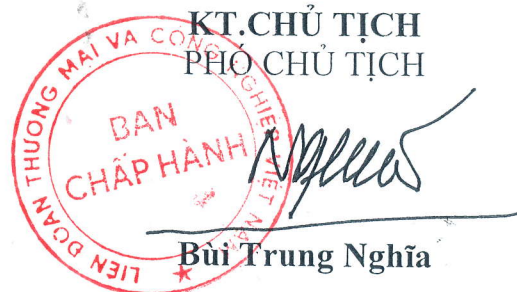 KT.CHỦ TỊCH
PHÓ CHỦ TỊCH
LIÊN ĐOÀN THƯƠNG MẠI VÀ CÔNG NGHIỆP VIỆT NAM
BAN
CHẤP HÀNH
Bùi Trung Nghĩa